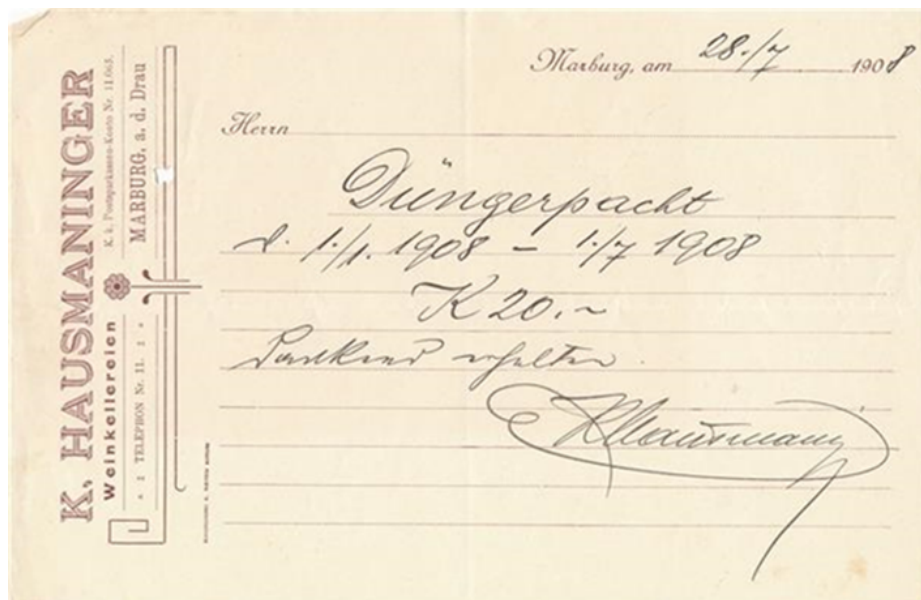 K. HAUSMANINGER
Weinkellereien
K. k. Postsparkassen-Konto Nr. 11.063.
MARBURG, a. d. Drau
TELEPHON Nr. 11.
Marburg, am 28./7 1908
Herrn
Düngerpacht
v. 1./1. 1908 – 1./7 1908
K 20.~
Dankend erhalten.
KHausmann